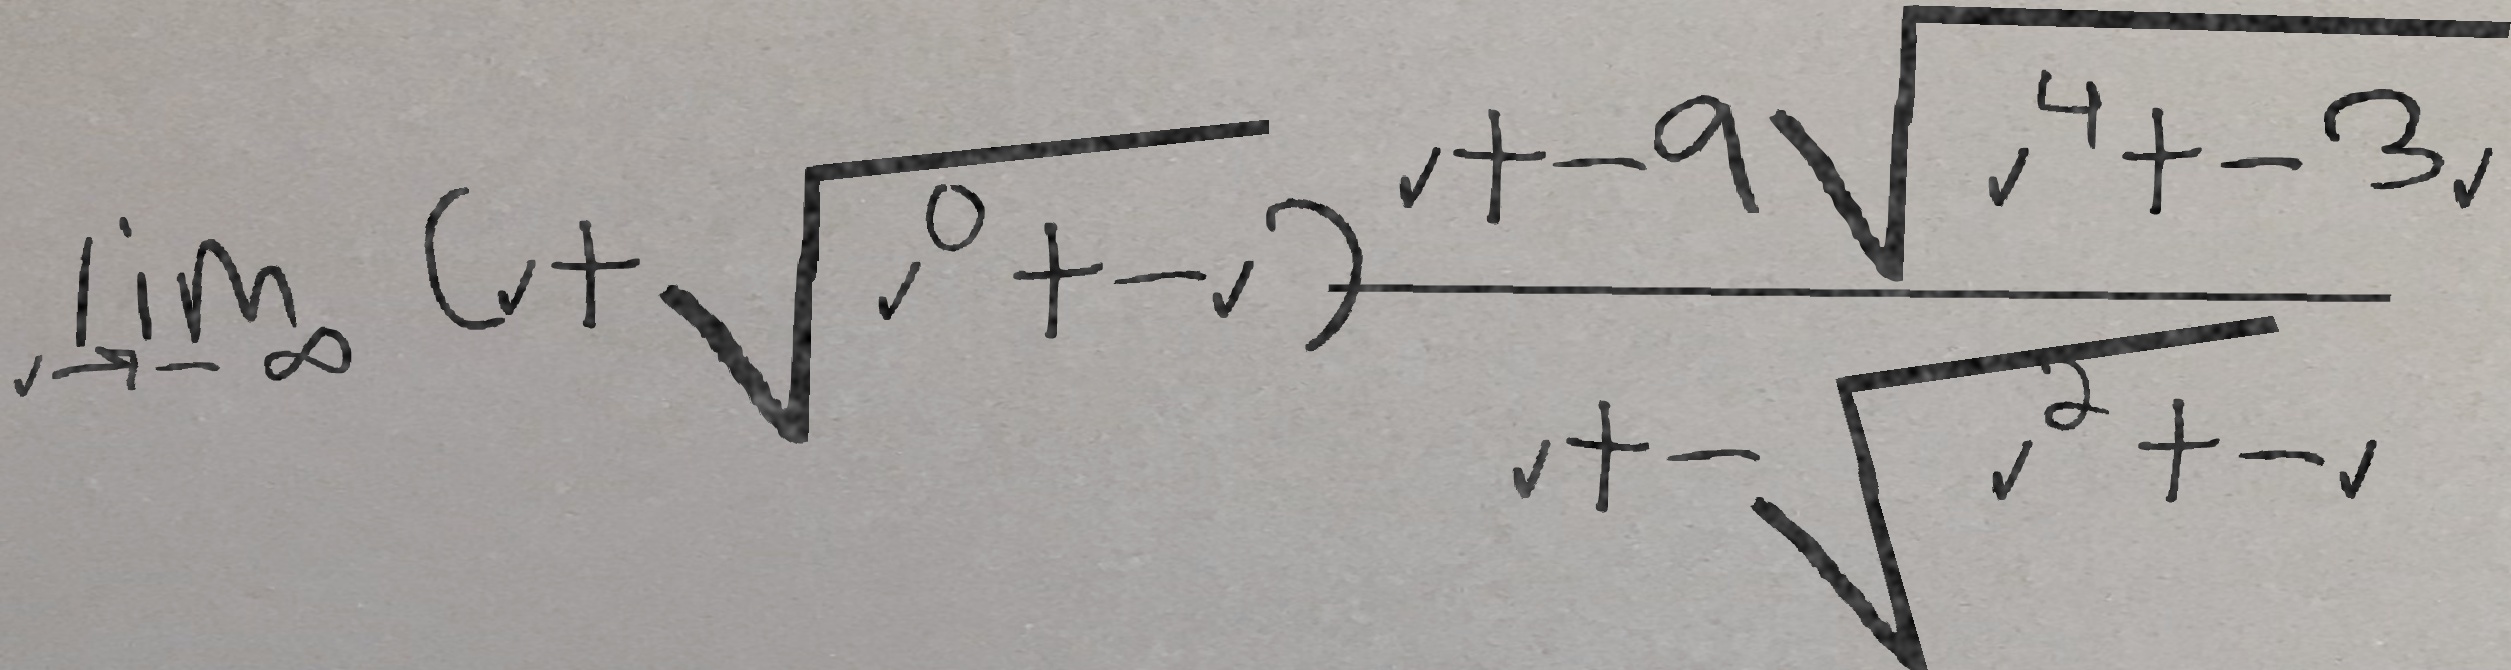 \lim_{v \to -\infty} (v + \sqrt{v^0 + -v}) \frac{v + -9\sqrt{v^4 + -3v}}{v + -\sqrt{v^2 + -v}}